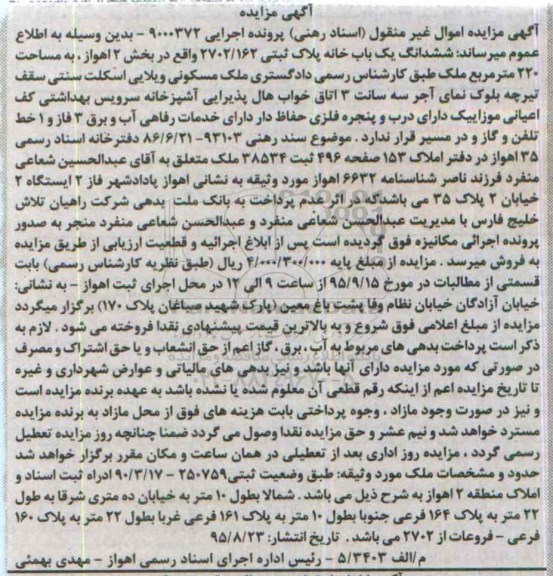 آگهی مزایده
آگهی مزایده اموال غیر منقول (اسناد رهنی) پرونده اجرایی ۹۰۰۰۳۷۲ - بدین وسیله به اطلاع
عموم میرساند: ششدانگ یک باب خانه پلاک ثبتی ۲۷۰۲/۱۶۲ واقع در بخش ۲ اهواز، به مساحت
۲۲۰ مترمربع ملک طبق کارشناس رسمی دادگستری ملک مسکونی ویلایی اسکلت سنتی سقف
تیرچه بلوک نمای آجر سه سانت ۳ اتاق خواب هال پذیرایی آشپزخانه سرویس بهداشتی کف
اعیانی موزاییک دارای درب و پنجره فلزی حفاظ دار دارای خدمات رفاهی آب و برق ۳ فاز و ۱ خط
تلفن و گاز و در مسیر قرار ندارد . موضوع سند رهنی ۹۳۱۰۳- ۸۶/۶/۲۱ دفترخانه اسناد رسمی
۳۵ اهواز در دفتر املاک ۱۵۳ صفحه ۴۹۶ ثبت ۳۸۵۳۴ ملک متعلق به آقای عبدالحسین شعاعی
منفرد فرزند ناصر شناسنامه ۶۶۳۲ اهواز مورد وثیقه به نشانی اهواز پادادشهر فاز ۲ ایستگاه ۲
خیابان ۲ پلاک ۳۵ می باشدکه در اثر عدم پرداخت به بانک ملت بدهی شرکت راهیان تلاش
خلیج فارس با مدیریت عبدالحسن شعاعی منفرد و عبدالحسن شعاعی منفرد منجر به صدور
پرونده اجرائی مکانیزه فوق گردیده است پس از ابلاغ اجرائیه و قطعیت ارزیابی از طریق مزایده
به فروش میرسد . مزایده از مبلغ پایه ۴/۰۰۰/۳۰۰/۰۰۰ ریال (طبق نظریه کارشناس رسمی) بابت
قسمتی از مطالبات در مورخ ۹۵/۹/۱۵ از ساعت ۹ الی ۱۲ در محل اجرای ثبت اهواز - به نشانی:
خیابان آزادگان خیابان نظام وفا پشت باغ معین (پارک شهید صباغان پلاک ۱۷۰) برگزار میگردد
مزایده از مبلغ اعلامی فوق شروع و به بالاترین قیمت پیشنهادی نقدا فروخته می شود . لازم به
ذکر است پرداخت بدهی های مربوط به آب ، برق ، گاز اعم از حق انشعاب و یا حق اشتراک و مصرف
در صورتی که مورد مزایده دارای آنها باشد و نیز بدهی های مالیاتی و عوارض شهرداری و غیره
تا تاریخ مزایده اعم از اینکه رقم قطعی آن معلوم شده یا نشده باشد به عهده برنده مزایده است
و نیز در صورت وجود مازاد ، وجوه پرداختی بابت هزینه های فوق از محل مازاد به برنده مزایده
مسترد خواهد شد و نیم عشر و حق مزایده نقدا وصول می گردد ضمنا چنانچه روز مزایده تعطیل
رسمی گردد ، مزایده روز اداری بعد از تعطیلی در همان ساعت و مکان مقرر برگزار خواهد شد
حدود و مشخصات ملک مورد وثیقه: طبق وضعیت ثبتی۲۵۰۷۵۹ - ۹۰/۳/۱۷ ادراه ثبت اسناد و
املاک منطقه ۲ اهواز به شرح ذیل می باشد . شمالا بطول ۱۰ متر به خیابان ده متری شرقا به طول
۲۲ متر به پلاک ۱۶۴ فرعی جنوبا بطول ۱۰ متر به پلاک ۱۶۱ فرعی غربا بطول ۲۲ متر به پلاک ۱۶۰
فرعی - فروعات از ۲۷۰۲ می باشد . تاریخ انتشار: ۹۵/۸/۲۳
م/الف ۵/۳۴۰۳ - رئیس اداره اجرای اسناد رسمی اهواز - مهدی بهمئی